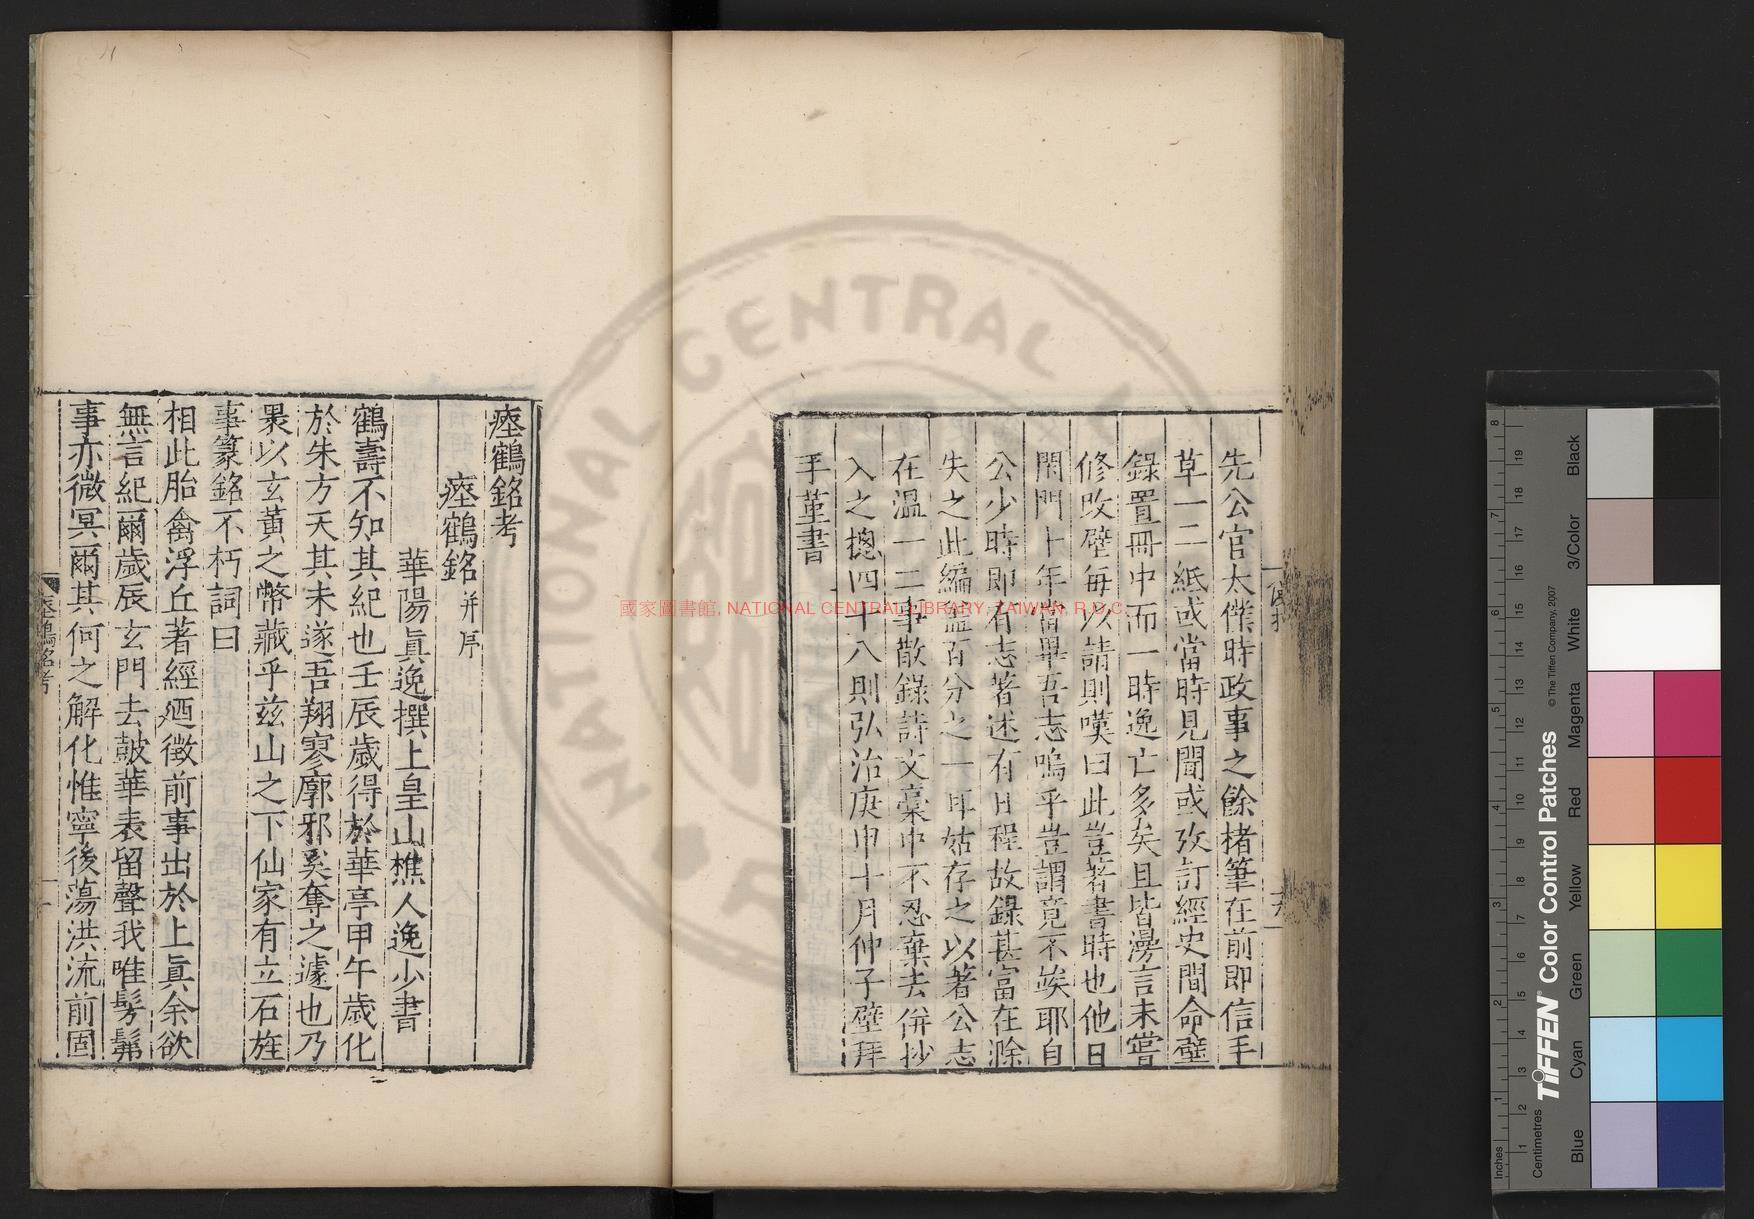 先公官太僕時政事之餘楮筆在前即信手
草一二紙或當時見聞或攷訂經史間命璧
錄置冊中而一時逸亡多矣且皆漫言未嘗
修改璧每以請則嘆曰此豈著書時也他日
閉門十年當畢吾志嗚乎豈謂竟不俟耶自
公少時即有志著述有日程故錄甚富在滁
失之此編蓋百分之一耳姑存之以著公志
在溫一二事散錄詩文藁中不忍棄去併抄
入之摠四十八則弘治庚申十月仲子璧拜
手堇書
瘞鶴銘考
瘞鶴銘并序
華陽眞逸撰上皇山樵人逸少書
鶴壽不知其紀也壬辰歲得於華亭甲午歲化
於朱方天其未遂吾翔寥廓邪奚奪之遽也乃
裹以玄黃之幣藏乎兹山之下仙家有立石旌
事篆銘不朽詞曰
相此胎禽浮丘著經廼徵前事出於上眞余欲
無言紀爾歲辰玄門去鼓華表留聲我唯髣髴
事亦微冥爾其何之解化惟寧後蕩洪流前固
瘞鶴銘考
一
國家圖書館, NATIONAL CENTRAL LIBRARY, TAIWAN, R.O.C.
NATIONAL CENTRAL L
TIFFEN Color Control Patches
© The Tiffen Company, 2007
Inches
Centimetres
Blue
Cyan
Green
Yellow
Red
Magenta
White
3/Color
Black